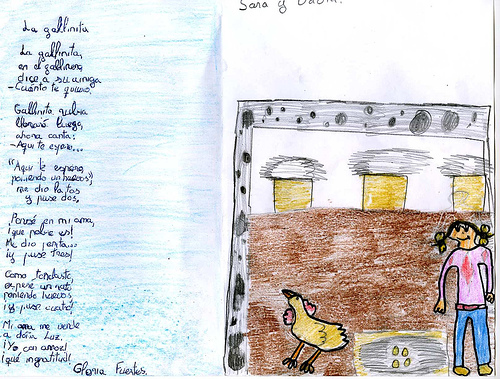 Sara y David.
La gallinita
La gallinita,
en el gallinero,
dice a su amiga
- Cuánto te quiero.
Gallinita rubia
llorará luego,
ahora canta:
- Aquí te espero...
"Aquí te espero,
poniendo un huevo",
me dio la tos
y puse dos.
Pensé en mi ama,
¡qué pobre es!
Me dio penita...
¡y puse tres!
Como tardaste,
esperé un rato
poniendo huevos,
¡y puse cuatro!
Mi ama me vende
a doña Luz.
¡Yo con arroz!
¡qué ingratitud!
Gloria Fuertes.